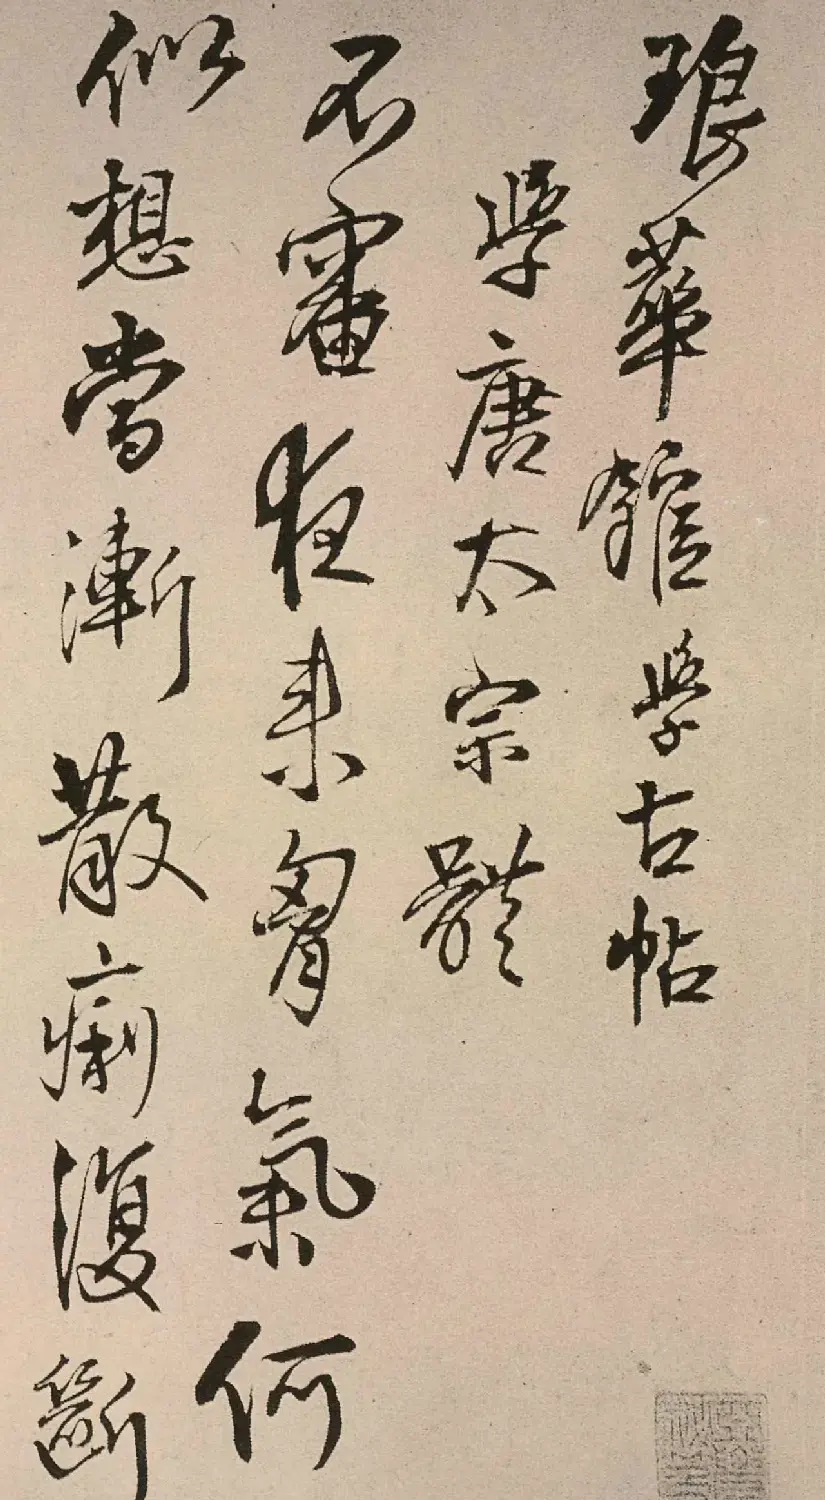 琅華館學古帖
學唐太宗體
不審夜来胷氣何
似想當漸散痢復斷